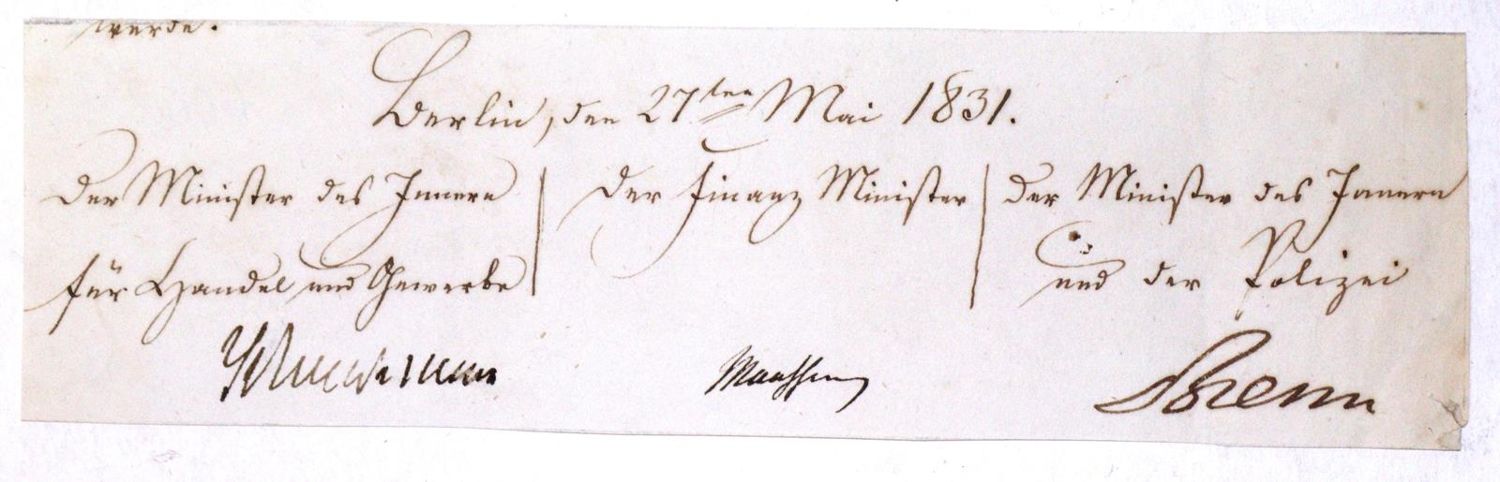 werde.
Berlin, den 27ten Mai 1831.
Der Minister des Innern
für Handel und Gewerbe
Schuckmann
Der Finanz Minister
Maassen
Der Minister des Innern
und der Polizei
Brenn